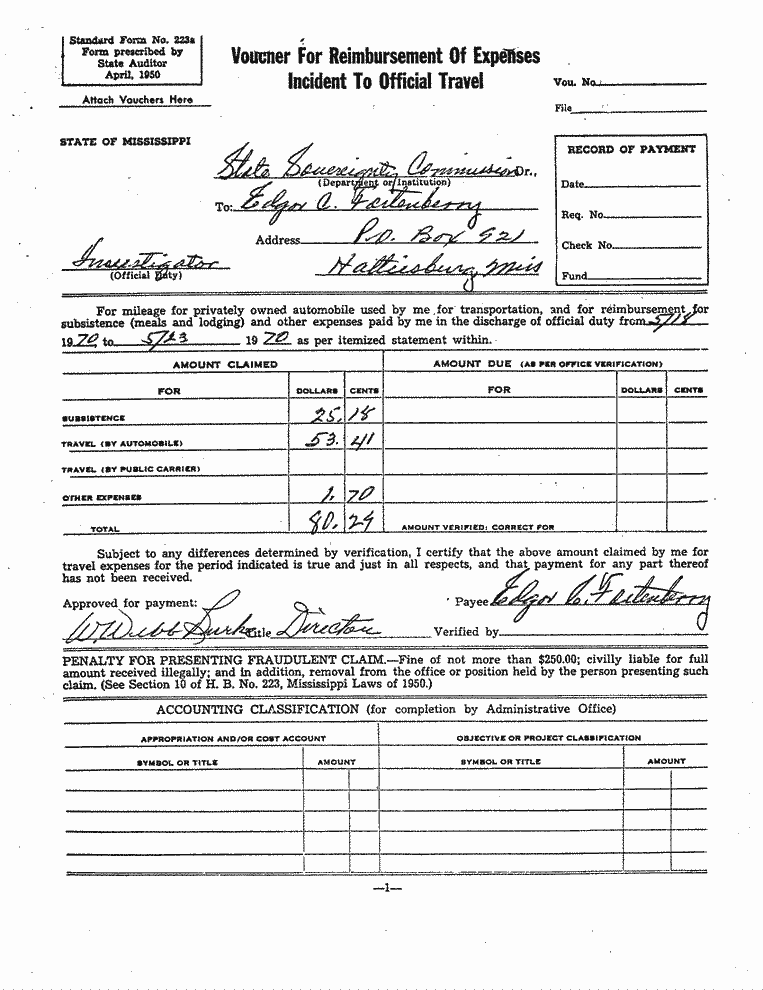 Standard Form No. 223a
Form prescribed by
State Auditor
April, 1950
Attach Vouchers Here
Voucher For Reimbursement Of Expenses
Incident To Official Travel
Vou. No.
File
STATE OF MISSISSIPPI
State Sovereignty Commission Dr.,
(Department or Institution)
To: Edgar C. Fortenberry
Address P.O. Box 921
Hattiesburg, Miss
Investigator
(Official Duty)
RECORD OF PAYMENT
Date
Req. No.
Check No.
Fund
For mileage for privately owned automobile used by me for transportation, and for reimbursement for
subsistence (meals and lodging) and other expenses paid by me in the discharge of official duty from 5/18
1970 to 5/23 1970 as per itemized statement within.
AMOUNT CLAIMED AMOUNT DUE (AS PER OFFICE VERIFICATION)
FOR DOLLARS CENTS FOR DOLLARS CENTS
SUBSISTENCE 25. 18
TRAVEL (BY AUTOMOBILE) 53. 41
TRAVEL (BY PUBLIC CARRIER)
OTHER EXPENSES 1. 70
TOTAL 80. 29 AMOUNT VERIFIED: CORRECT FOR
Subject to any differences determined by verification, I certify that the above amount claimed by me for
travel expenses for the period indicated is true and just in all respects, and that payment for any part thereof
has not been received.
Approved for payment: Payee Edgar C. Fortenberry
W. Webb Burke Title Director Verified by
PENALTY FOR PRESENTING FRAUDULENT CLAIM.—Fine of not more than $250.00; civilly liable for full
amount received illegally; and in addition, removal from the office or position held by the person presenting such
claim. (See Section 10 of H. B. No. 223, Mississippi Laws of 1950.)
ACCOUNTING CLASSIFICATION (for completion by Administrative Office)
APPROPRIATION AND/OR COST ACCOUNT OBJECTIVE OR PROJECT CLASSIFICATION
SYMBOL OR TITLE AMOUNT SYMBOL OR TITLE AMOUNT
—1—